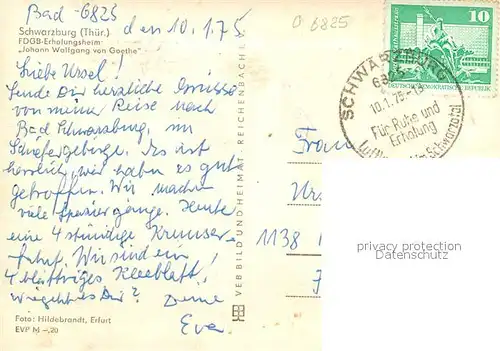 Bad - 6825
den 10.1.75
Schwarzburg (Thür.)
FDGB-Erholungsheim
„Johann Wolfgang von Goethe"
Liebe Ursel!
Sende Dir herzliche Grüsse
von meiner Reise nach
Bad Schwarzburg, im
Schiefergebirge. Es ist
herrlich, wir haben es gut
getroffen. Wir machen
viele Spaziergänge. Heute
eine 4 stündige Kremser-
fahrt. Wir sind ein
4 blättriges Kleeblatt!
Wie geht es Dir? Deine
Eva
Foto: Hildebrandt, Erfurt
EVP M -,20
VEB BILD UND HEIMAT REICHENBACH I. V.
6825
10
DEUTSCHE DEMOKRATISCHE REPUBLIK
SCHWARZBURG
6825
10.1.75-
Für Ruhe und
Erholung
Schwarzatal
Frau
1138
privacy protection
Datenschutz